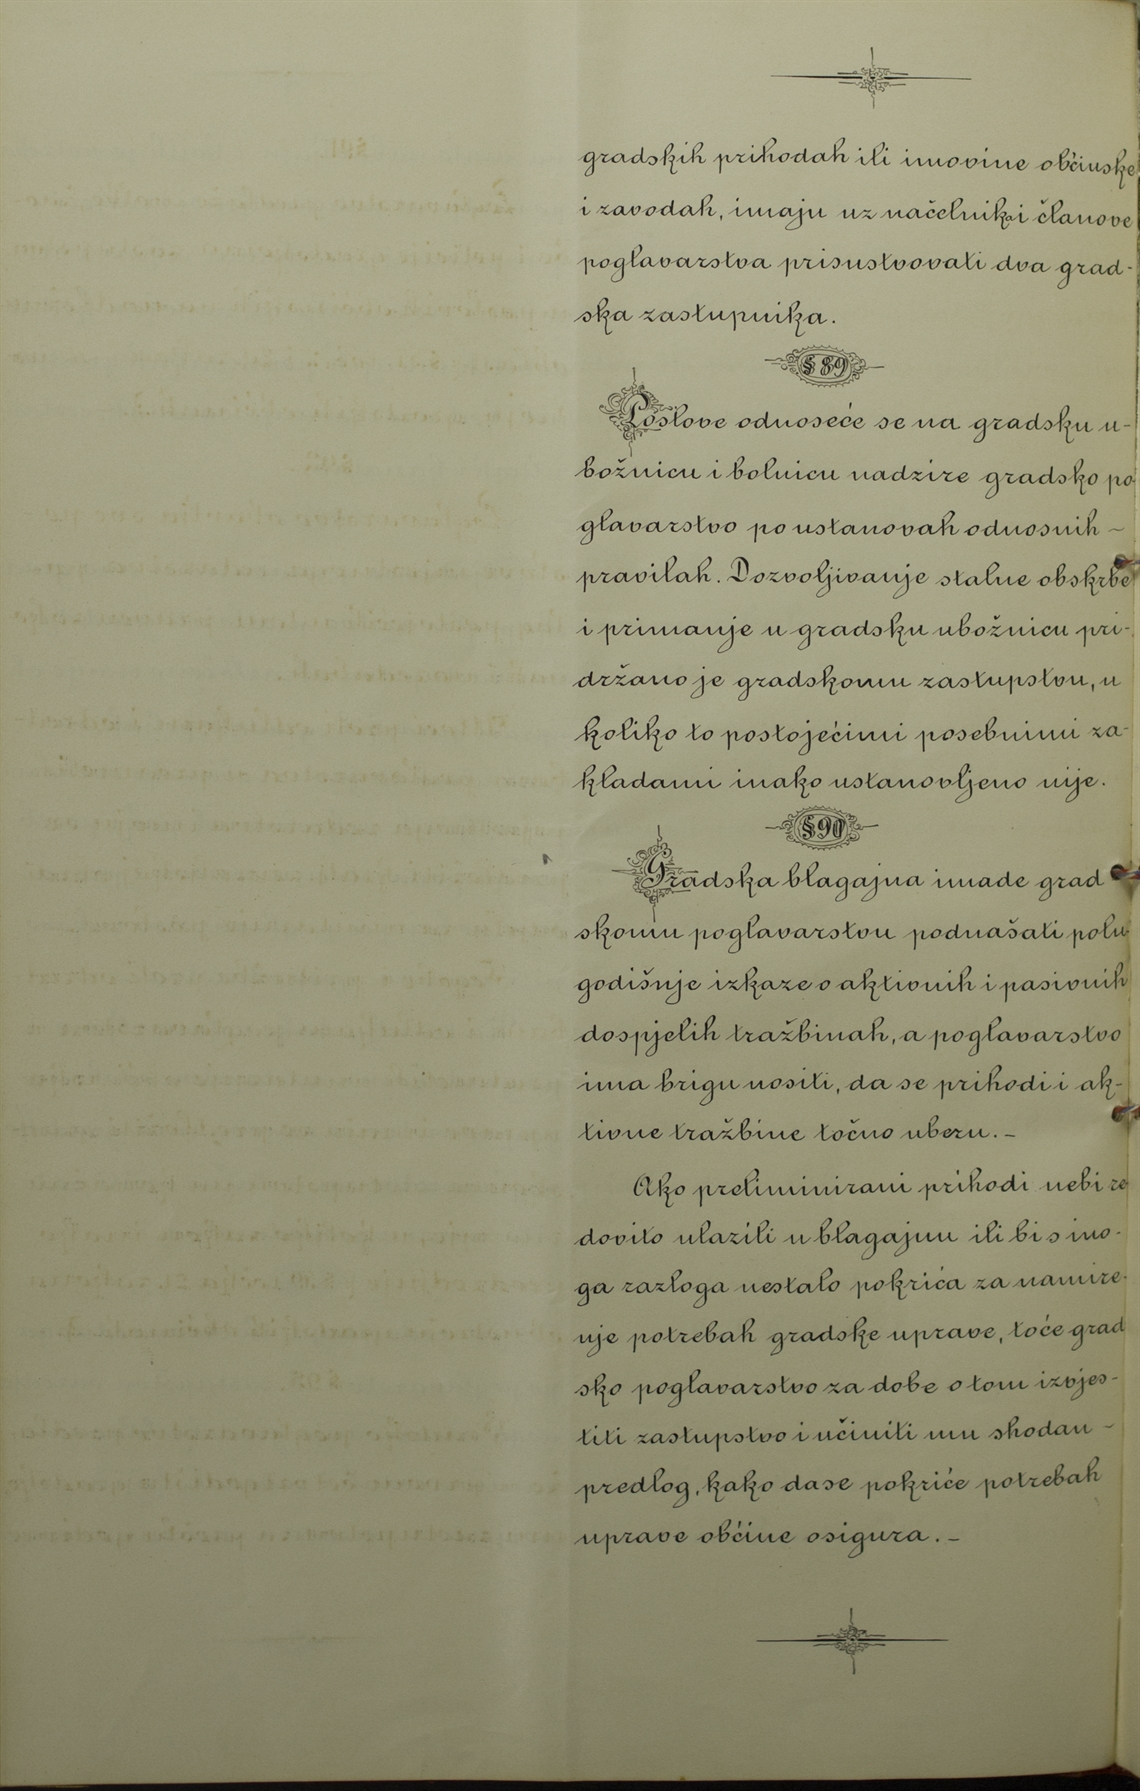 gradskih prihodah ili imovine obćinske
i zavodah, imaju uz načelnika i članove
poglavarstva prisustvovati dva grad-
ska zastupnika.
§ 89
Poslove odnoseće se na gradsku u-
božnicu i bolnicu nadzire gradsko po-
glavarstvo po ustanovah odnosnih –
pravilah. Dozvoljivanje stalne obskrbe
i primanje u gradsku ubožnicu pri-
držano je gradskomu zastupstvu, u
koliko to postojećimi posebnimi za-
kladami inako ustanovljeno nije.
§ 90
Gradska blagajna imade grad
skomu poglavarstvu podnašati polu-
godišnje izkaze o aktivnih i pasivnih
dospjelih tražbinah, a poglavarstvo
ima brigu nositi, da se prihodi i ak-
tivne tražbine točno uberu. –
Ako preliminirani prihodi nebi re
dovito ulazili u blagajnu ili bi s ino-
ga razloga nestalo pokrića za namire-
nje potrebah gradske uprave, to će grad
sko poglavarstvo za dobe o tom izvjes-
titi zastupstvo i učiniti mu shodan –
predlog, kako da se pokriće potrebah
uprave obćine osigura. –